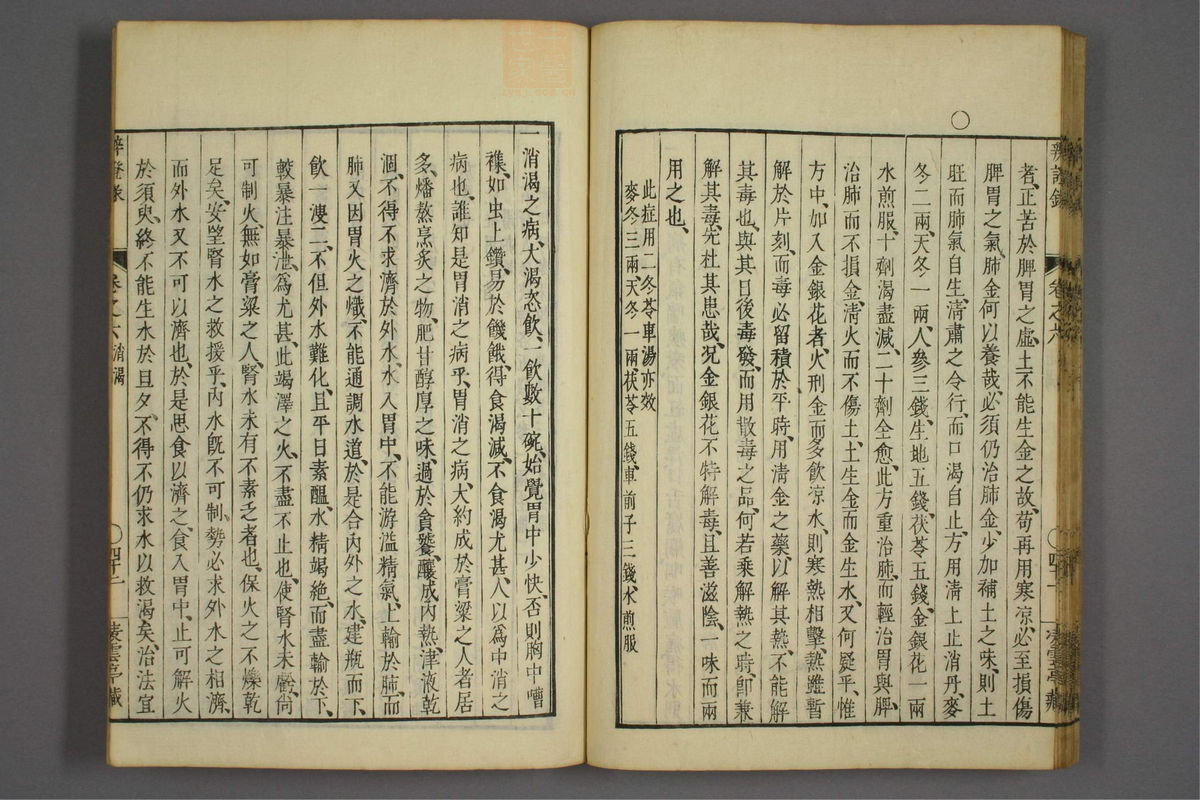 者、正苦於脾胃之虛、土不能生金之故、苟再用寒涼、必至損傷
脾胃之氣、肺金何以養哉、必須仍治肺金、少加補土之味、則土
旺而肺氣自生、淸肅之令行、而口渴自止、方用淸上止消丹、麥
冬二兩、天冬一兩、人參三錢、生地五錢、茯苓五錢、金銀花一兩
水煎服、十劑渴盡減、二十劑全愈、此方重治肺、而輕治胃與脾、
治肺而不損金、淸火而不傷土、土生金而金生水、又何疑乎、惟
方中、加入金銀花者、火刑金而多飮涼水、則寒熱相擊、熱雖暫
解於片刻、而毒必留積於平時、用淸金之藥、以解其熱、不能解
其毒也、與其日後毒發、而用散毒之品、何若乘解熱之時、卽兼
解其毒、先杜其患哉、况金銀花不特解毒、且善滋陰、一味而兩
用之也、
此症用二冬苓車湯亦效
麥冬三兩、天冬一兩、茯苓五錢、車前子三錢、水煎服
辨證錄 卷之六 四十一 凌雲亭藏
一消渴之病、大渴恣飮、一飮數十碗、始覺胃中少快、否則胸中嘈
襍、如虫上鑽、易於饑餓、得食渴減、不食渴尤甚、人以爲中消之
病也、誰知是胃消之病乎、胃消之病、大約成於膏粱之人者居
多、燔熬烹炙之物、肥甘醇厚之味、過於貪饕、釀成內熱、津液乾
涸、不得不求濟於外水、水入胃中、不能游溢精氣、上輸於肺、而
肺又因胃火之熾、不能通調水道、於是合內外之水、建瓶而下、
飮一溲二、不但外水難化、且平日素醞、水精竭絶、而盡輸於下、
較暴注暴泄、爲尤甚、此竭澤之火、不盡不止也、使腎水未虧、尙
可制火、無如膏粱之人、腎水未有不素乏者也、保火之不爍乾
足矣、安望腎水之救援乎、內水旣不可制、勢必求外水之相濟、
而外水又不可以濟也、於是思食以濟之、食入胃中、止可解火
於須臾、終不能生水於旦夕、不得不仍求水以救渴矣、治法宜
辨證錄 卷之六 消渴 四十二 凌雲亭藏